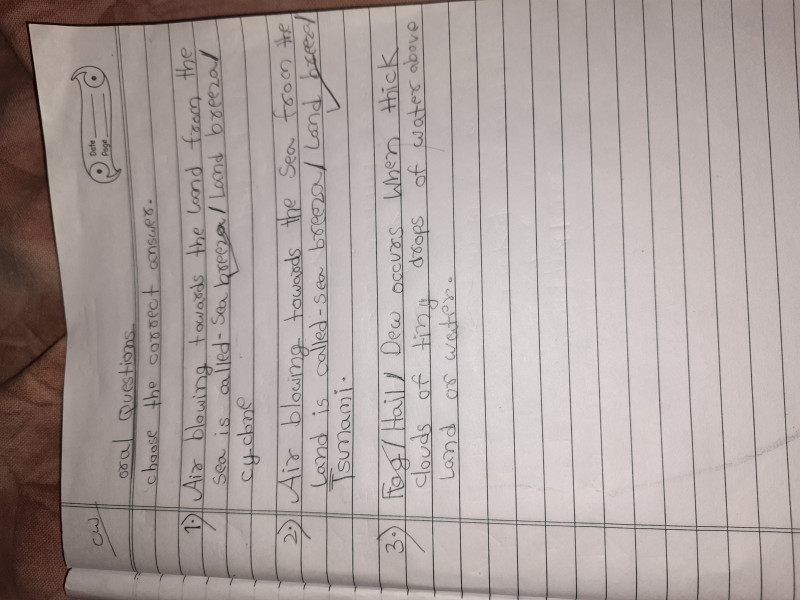 CW
Date
Page
oral Questions
choose the correct answer.
1.) Air blowing towards the Land from the
sea is called-Sea breeza/Land breeza/
cyclone
2.) Air blowing towards the Sea from the
land is called-sea breeza/Land breeza/
Tsunami.
3.) Fog/Hail/Dew occurs when thick
clouds of ting drops of water above
Land or water.